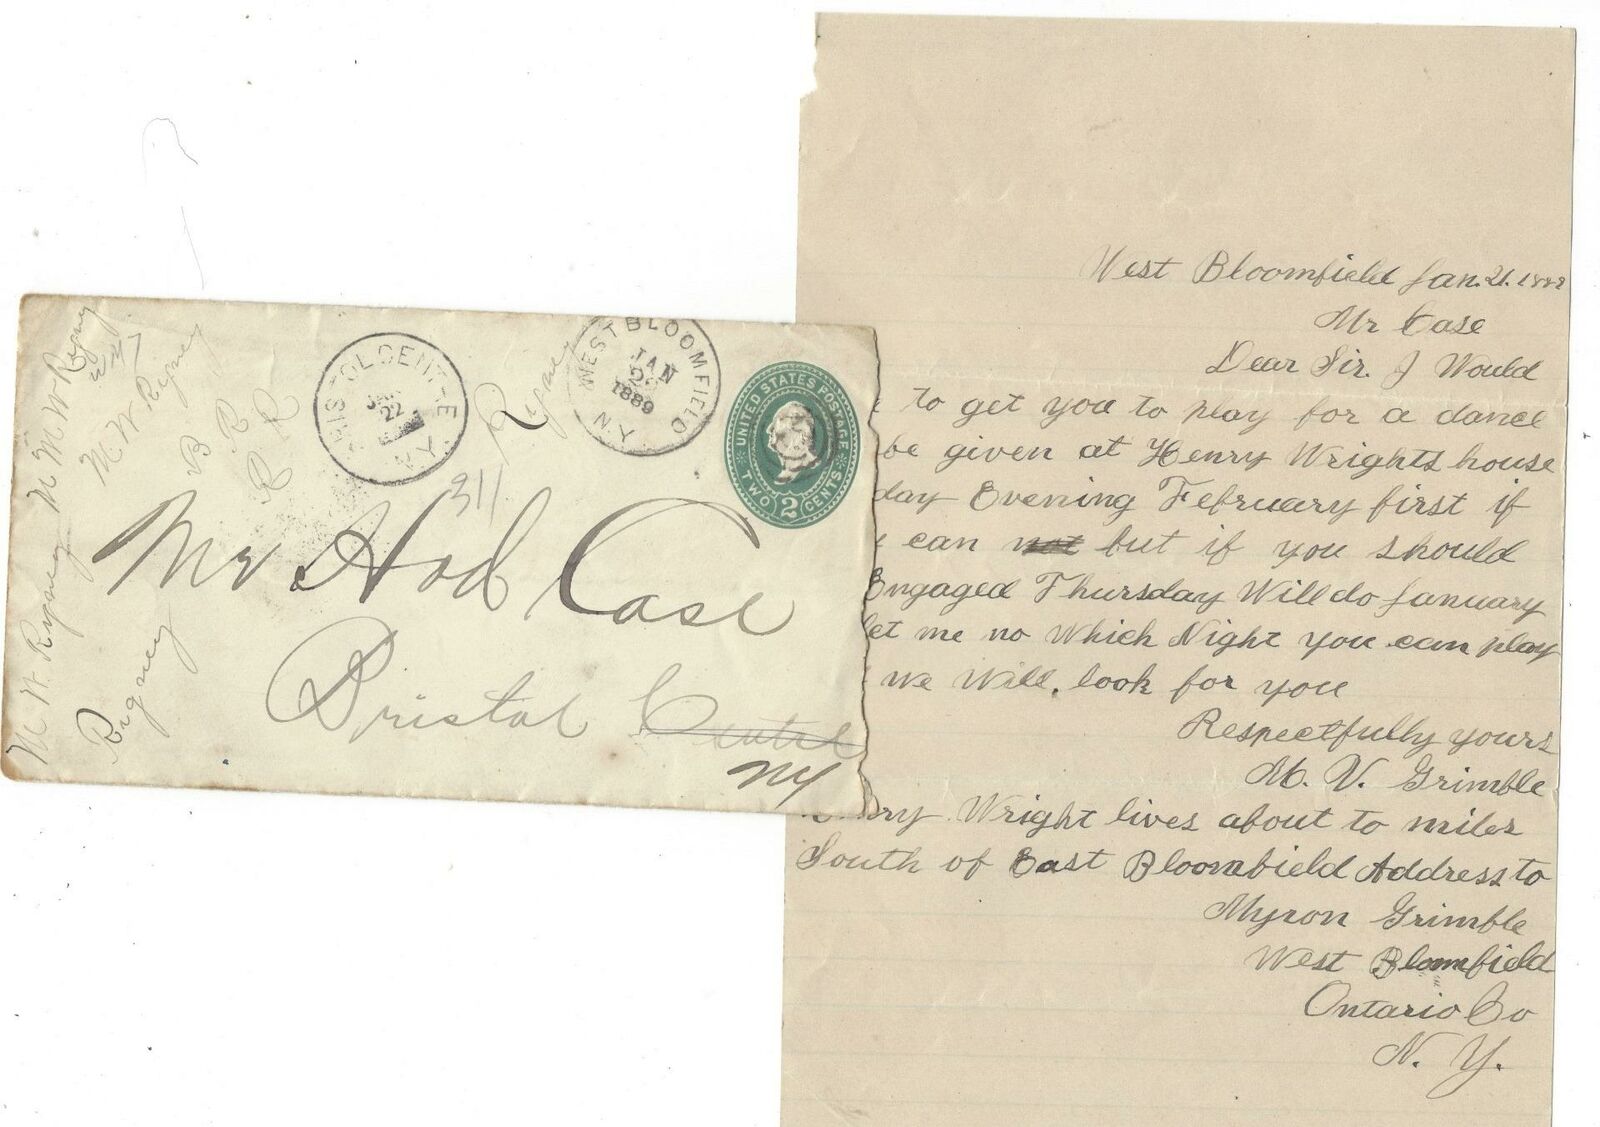 M. W. Rigney M M W Rigney
M W Rigney
Rigney
B R R
R R
Rigney
BRISTOL CENTRE
JAN
22
N.Y.
311
WEST BLOOMFIELD
JAN
1889
N.Y.
UNITED STATES POSTAGE
TWO 2 CENTS
Mr Hod Case
Bristol Centre
NY
West Bloomfield Jan. 21. 1889
Mr Case
Dear Sir. I Would
to get you to play for a dance
be given at Henry Wrights house
day Evening February first if
can not but if you should
Engaged Thursday Will do January
let me no Which Night you can play
we Will. look for you
Respectfully yours
M. V. Grimble
Wright lives about to miles
South of East Bloomfield Address to
Myron Grimble
West Bloomfield
Ontario Co
N. Y.